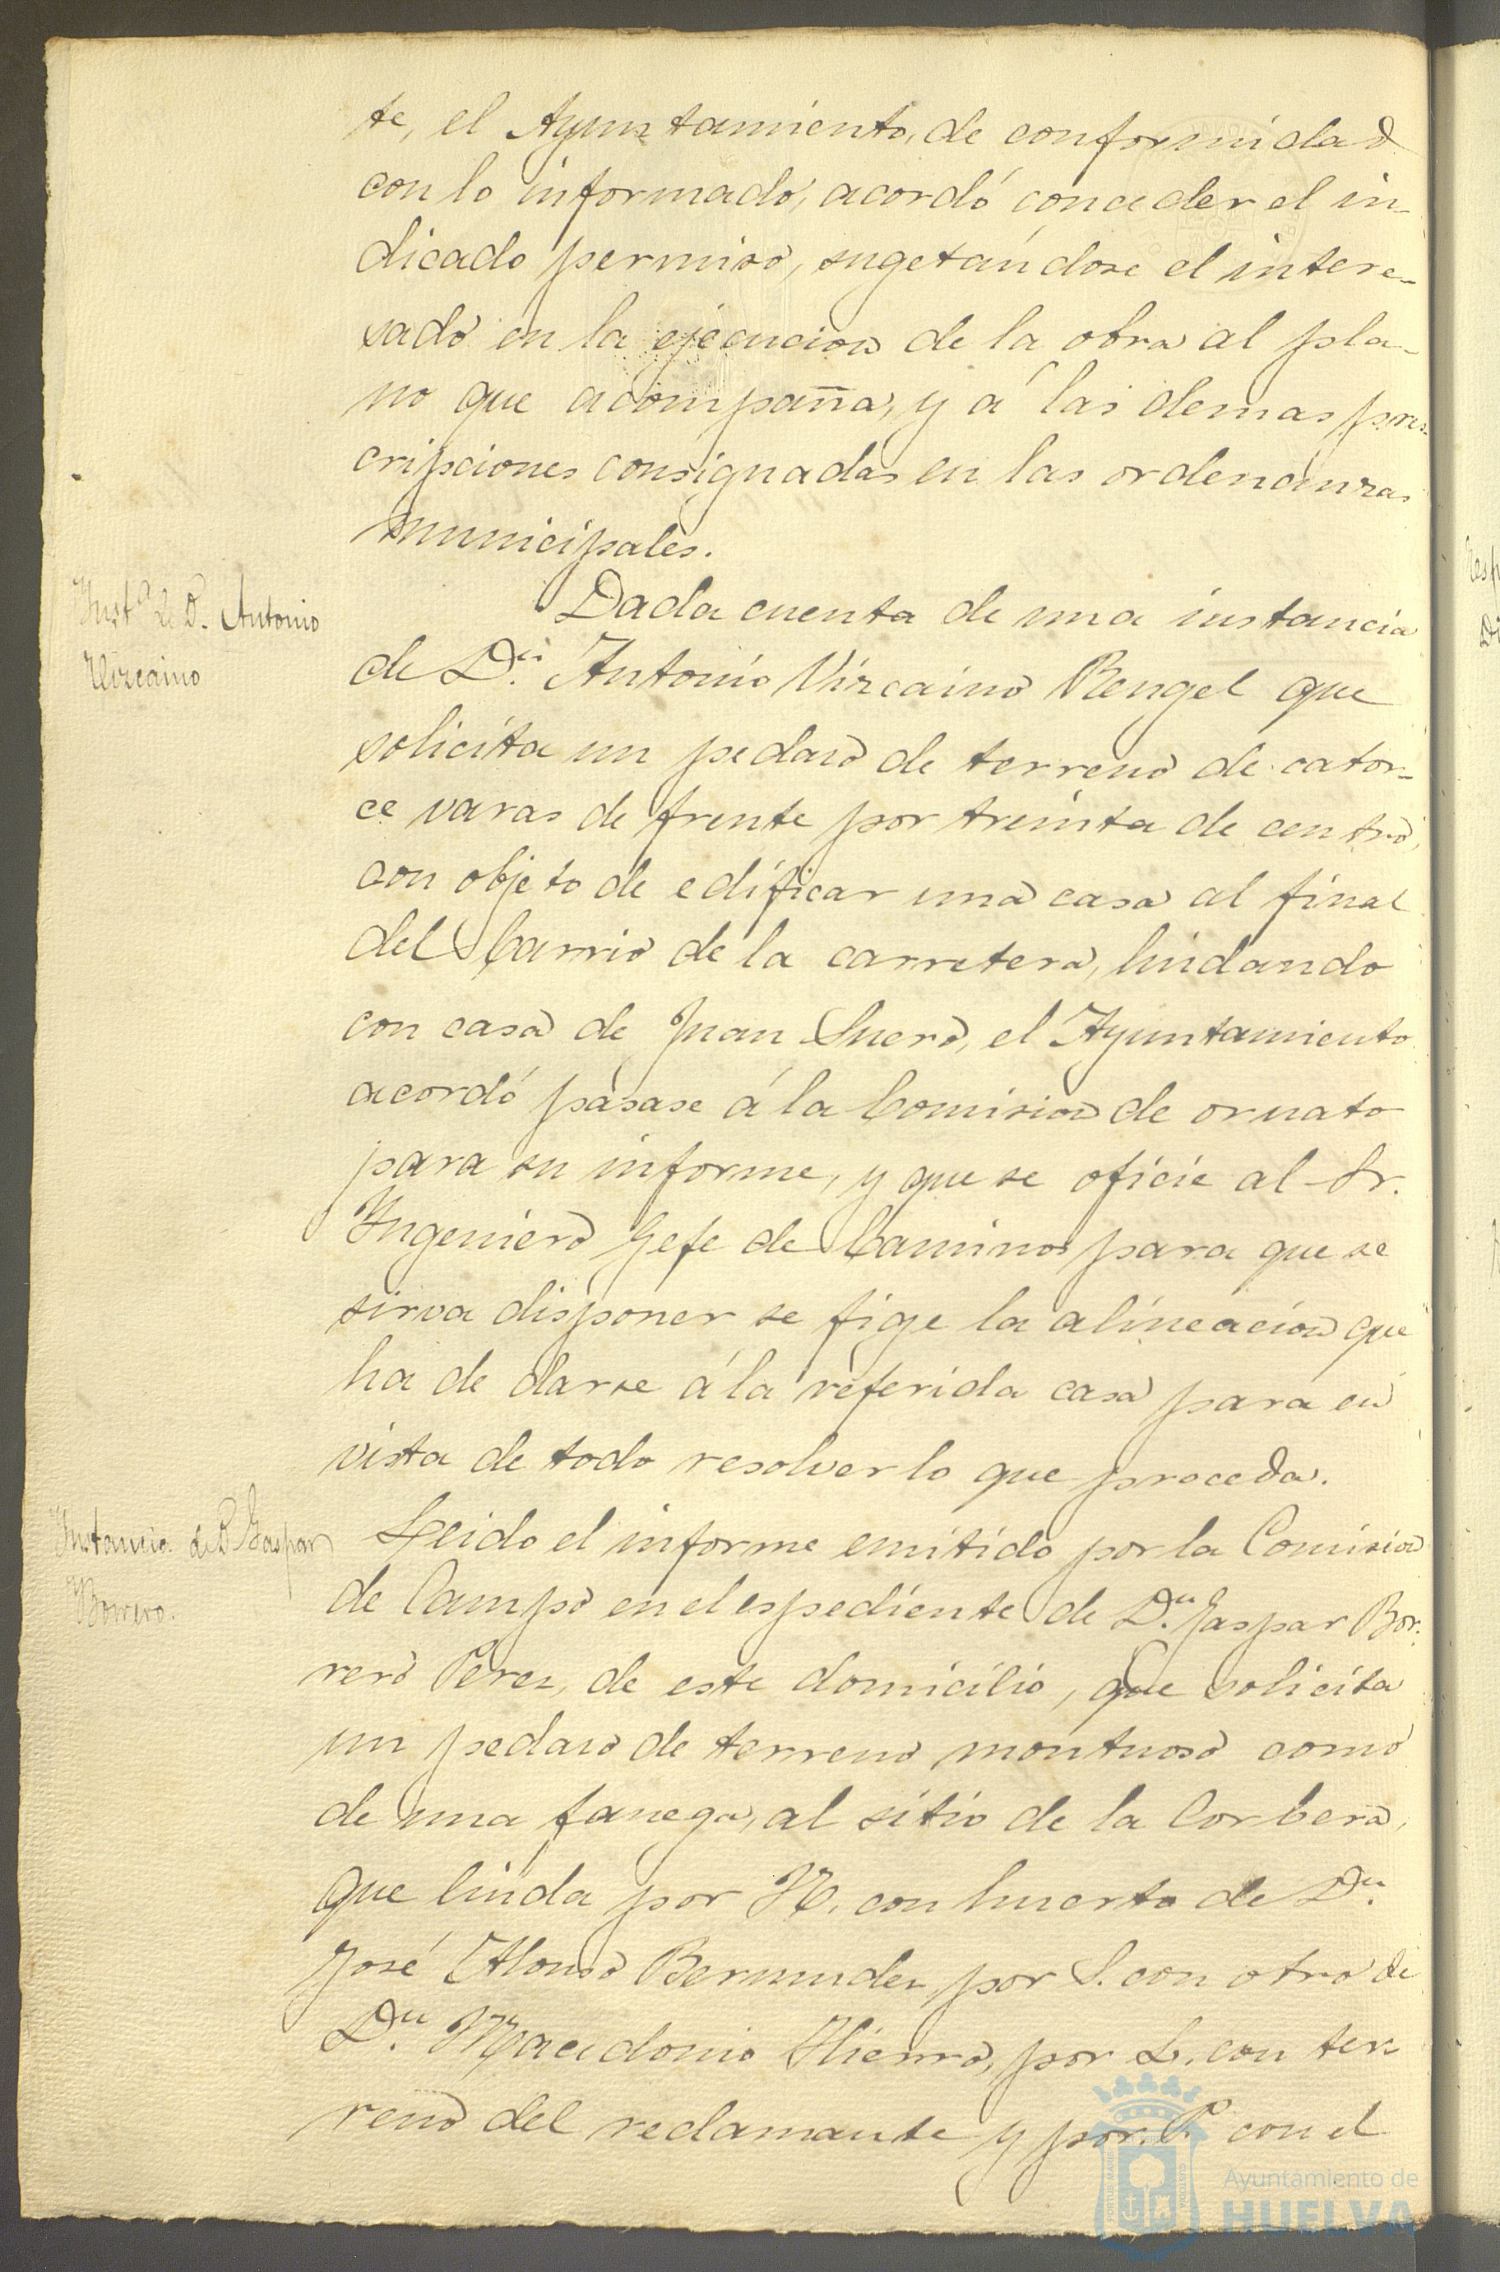 te, el Ayuntamiento, de conformidad
con lo informado, acordó conceder el in-
dicado permiso, sugetándose el intere-
sado en la ejecucion de la obra al pla-
no que acompaña, y á las demas pres-
cripciones consignadas en las ordenanzas
municipales.
Inst.ª de D. Antonio
Vizcaino
Dada cuenta de una instancia
de D.n Antonio Vizcaino Rengel que
solicita un pedazo de terreno de cator-
ce varas de frente por treinta de centro,
con objeto de edificar una casa al final
del barrio de la carretera, lindando
con casa de Juan Suero, el Ayuntamiento
acordó pasase á la Comision de ornato
para su informe, y que se oficie al Sr.
Ingeniero Gefe de Caminos para que se
sirva disponer se fige la alineacion que
ha de darse á la referida casa para en
vista de todo resolver lo que proceda.
Instancia de D. Gaspar
Borrero.
Leido el informe emitido por la Comision
de Campo en el espediente de D.n Gaspar Bor-
rero Perez, de este domicilio, que solicita
un pedazo de terreno montuoso como
de una fanega, al sitio de la Corbera,
que linda por N. con huerto de D.n
José Alonso Bermudez, por S. con otro de
D.n Macedonio Hierro, por L. con ter-
reno del reclamante y por P. con el
Ayuntamiento de
HUELVA